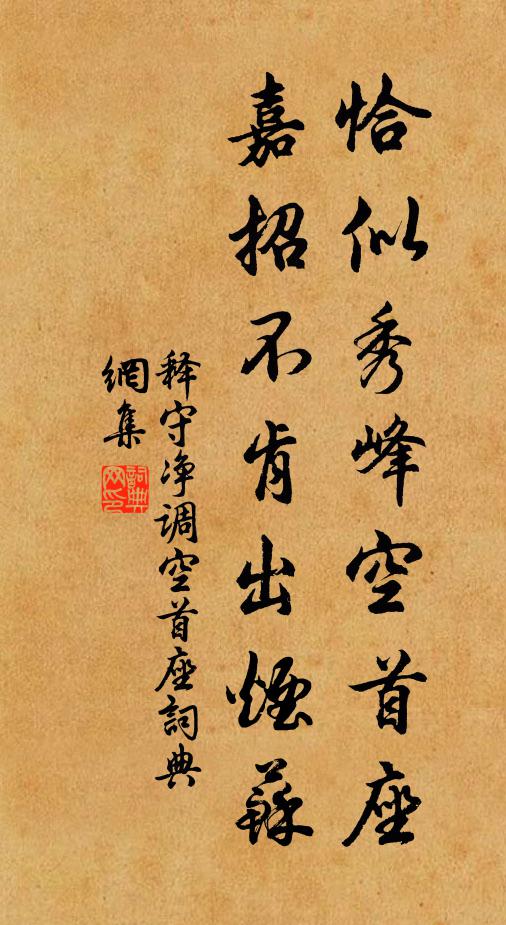 恰似秀峰空首座
嘉招不肯出烟萝
释守净调空首座詞典
網集
詞典网印